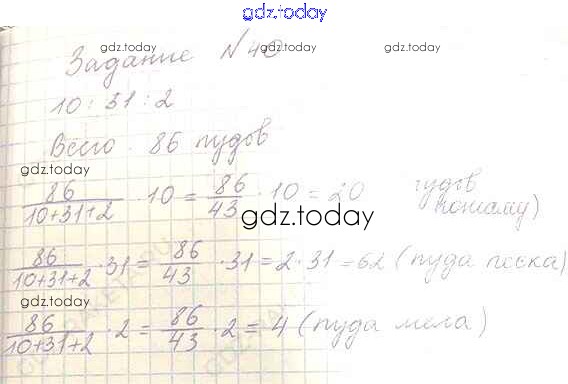 gdz.today
Задание №40
gdz.today
gdz.today
gdz.today
10 : 31 : 2
Всего - 86 пудов
gdz.today
86/(10+31+2) · 10 = 86/43 · 10 = 20 пудов
поташу)
gdz.today
86/(10+31+2) · 31 = 86/43 · 31 = 2 · 31 = 62 (пуда песка)
gdz.today
86/(10+31+2) · 2 = 86/43 · 2 = 4 (пуда мела)